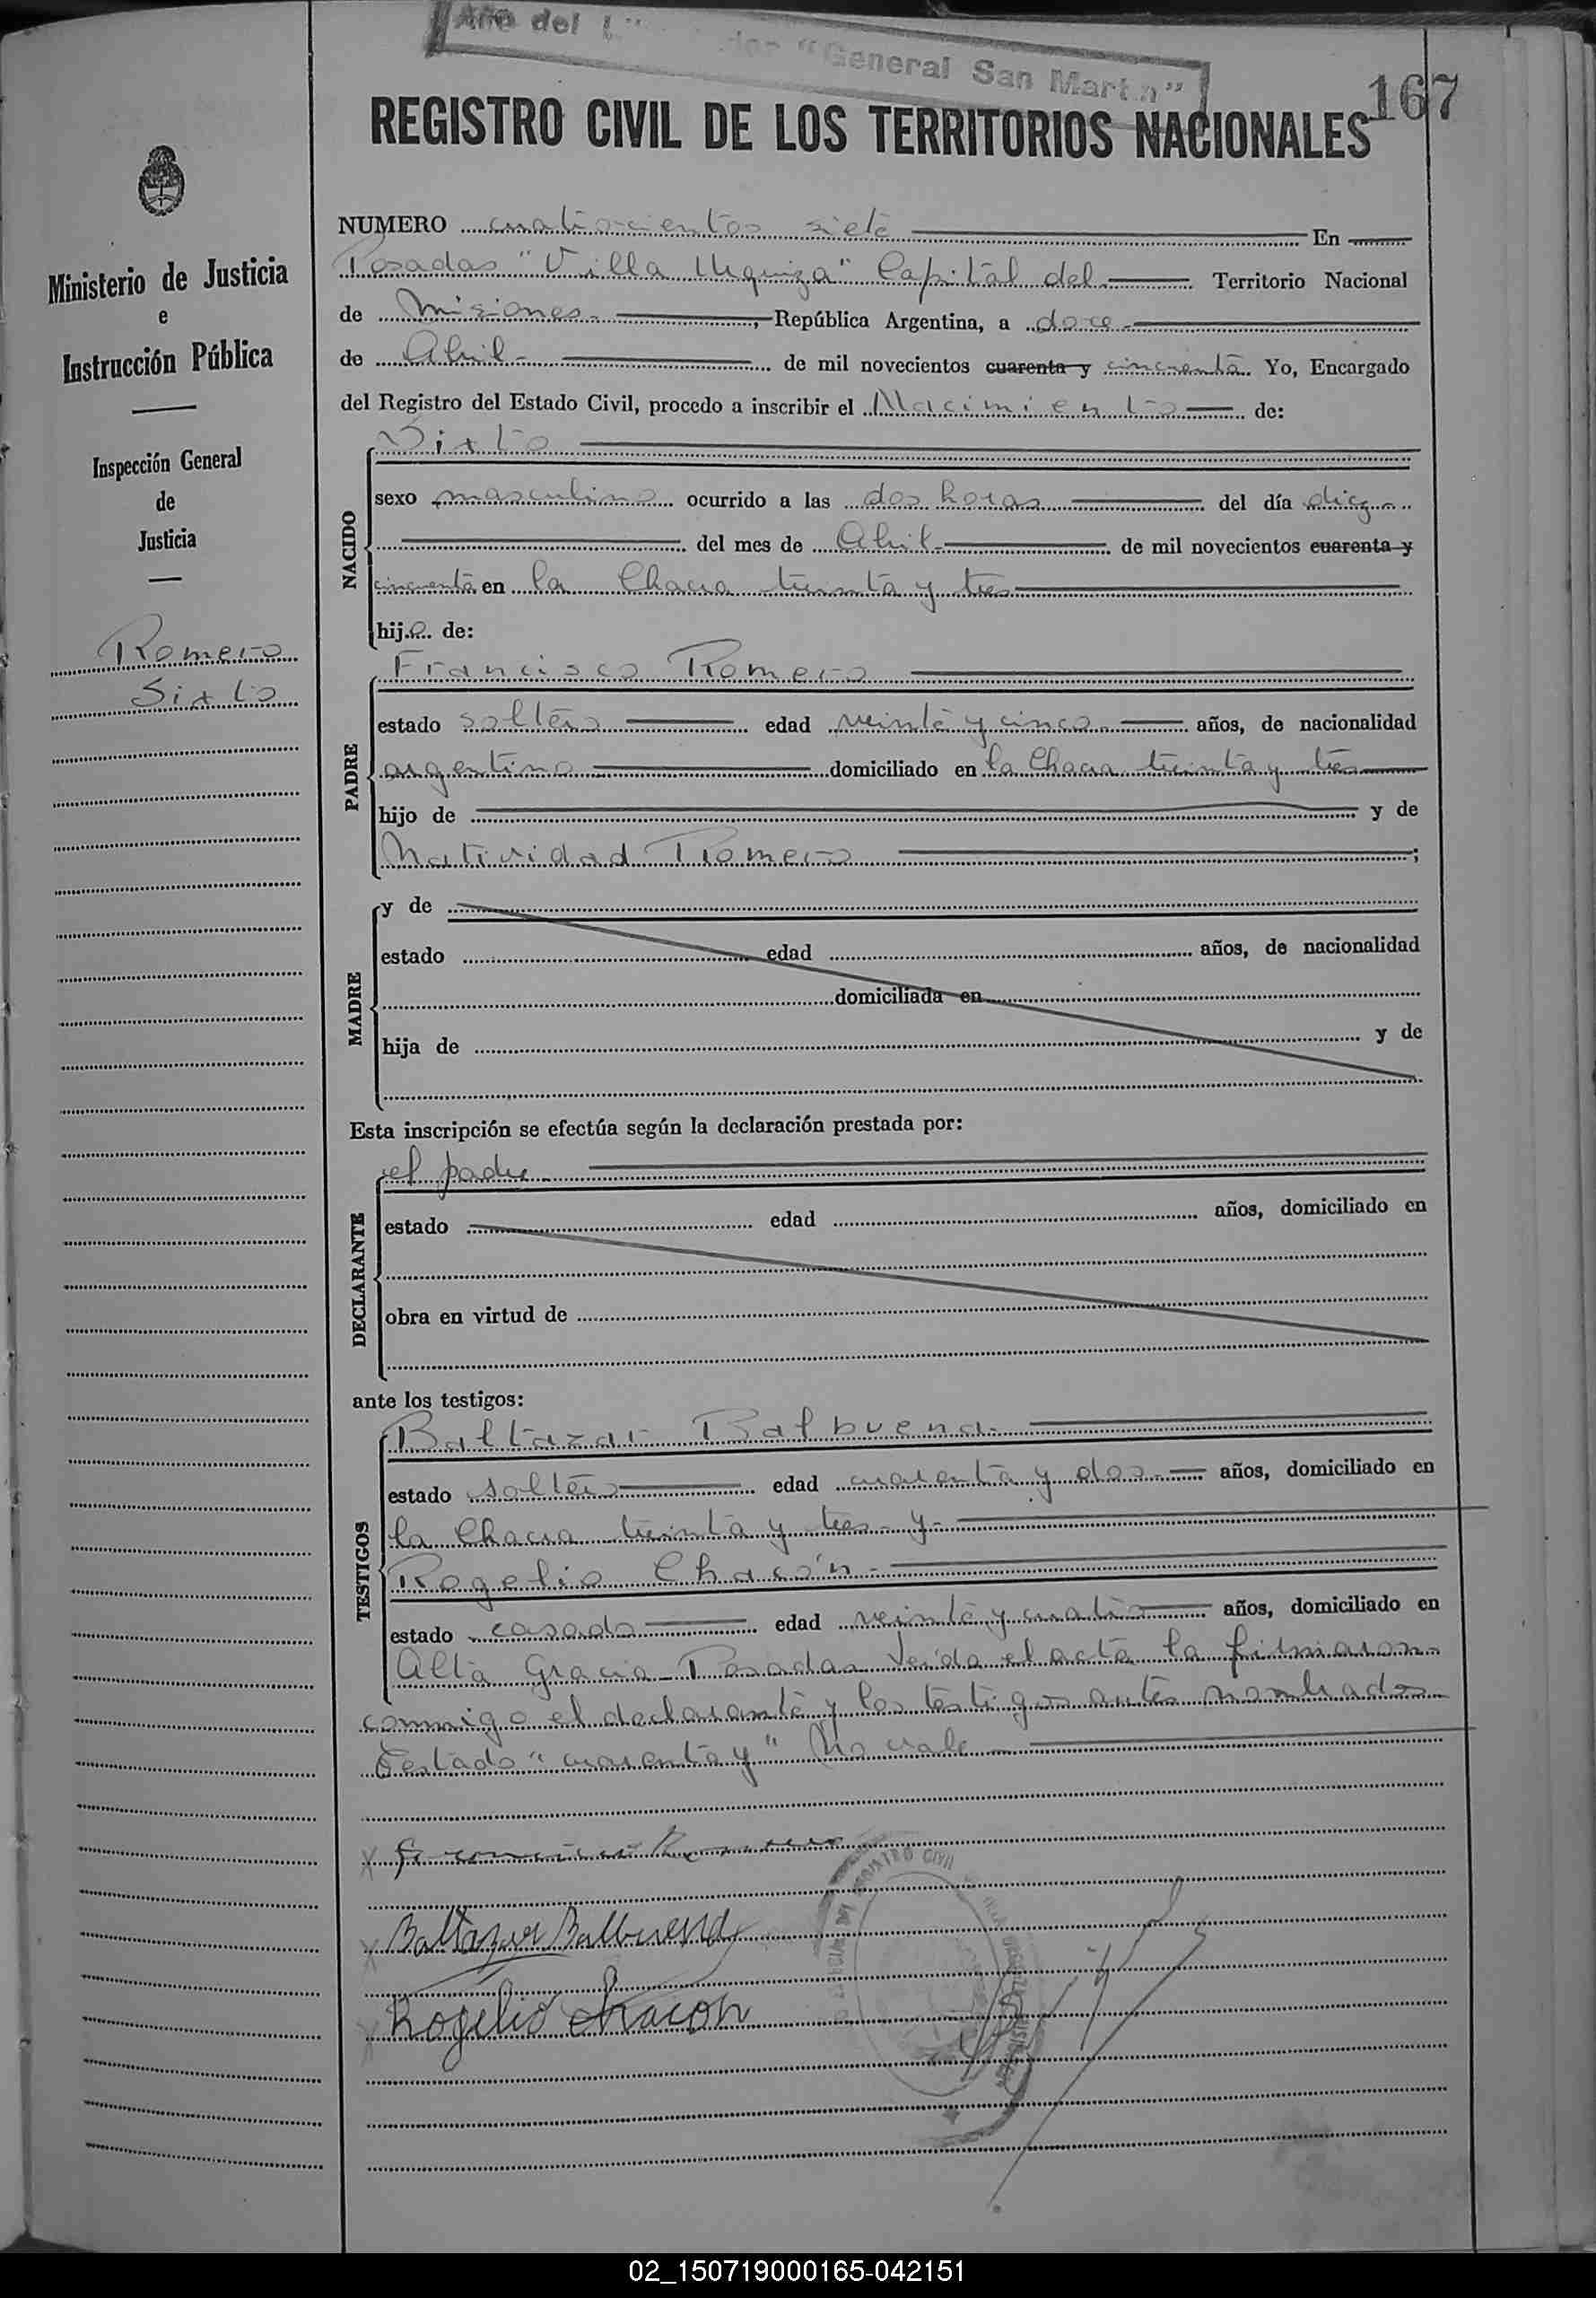 Año del "General San Martín"
167
REGISTRO CIVIL DE LOS TERRITORIOS NACIONALES
Ministerio de Justicia
e
Instrucción Pública
Inspección General
de
Justicia
Romero
Sixto
NUMERO cuatrocientos siete En
Posadas "Villa Urquiza" Capital del Territorio Nacional
de Misiones. , República Argentina, a doce
de Abril de mil novecientos cuarenta y cincuenta. Yo, Encargado
del Registro del Estado Civil, procedo a inscribir el Nacimiento de:
NACIDO
Sixto
sexo masculino ocurrido a las dos horas del día diez
del mes de Abril de mil novecientos cuarenta y
cincuenta en la Chacra treinta y tres
hijo de:
PADRE
Francisco Romero
estado soltero edad veinte y cinco años, de nacionalidad
argentino domiciliado en la Chacra treinta y tres
hijo de y de
Natividad Romero ;
MADRE
y de
estado edad años, de nacionalidad
domiciliada en
hija de y de
Esta inscripción se efectúa según la declaración prestada por:
DECLARANTE
el padre
estado edad años, domiciliado en
obra en virtud de
ante los testigos:
TESTIGOS
Baltazar Balbuena
estado soltero edad cuarenta y dos años, domiciliado en
la Chacra treinta y tres y
Rogelio Chacón
estado casado edad veinte y cuatro años, domiciliado en
Alta Gracia Posadas Leida el acta la firmaron
conmigo el declarante y los testigos antes nombrados
Testado "cuarenta y" No vale
Francisco Romero
Baltazar Balbuena
Rogelio Chacon
REGISTRO CIVIL
02_150719000165-042151